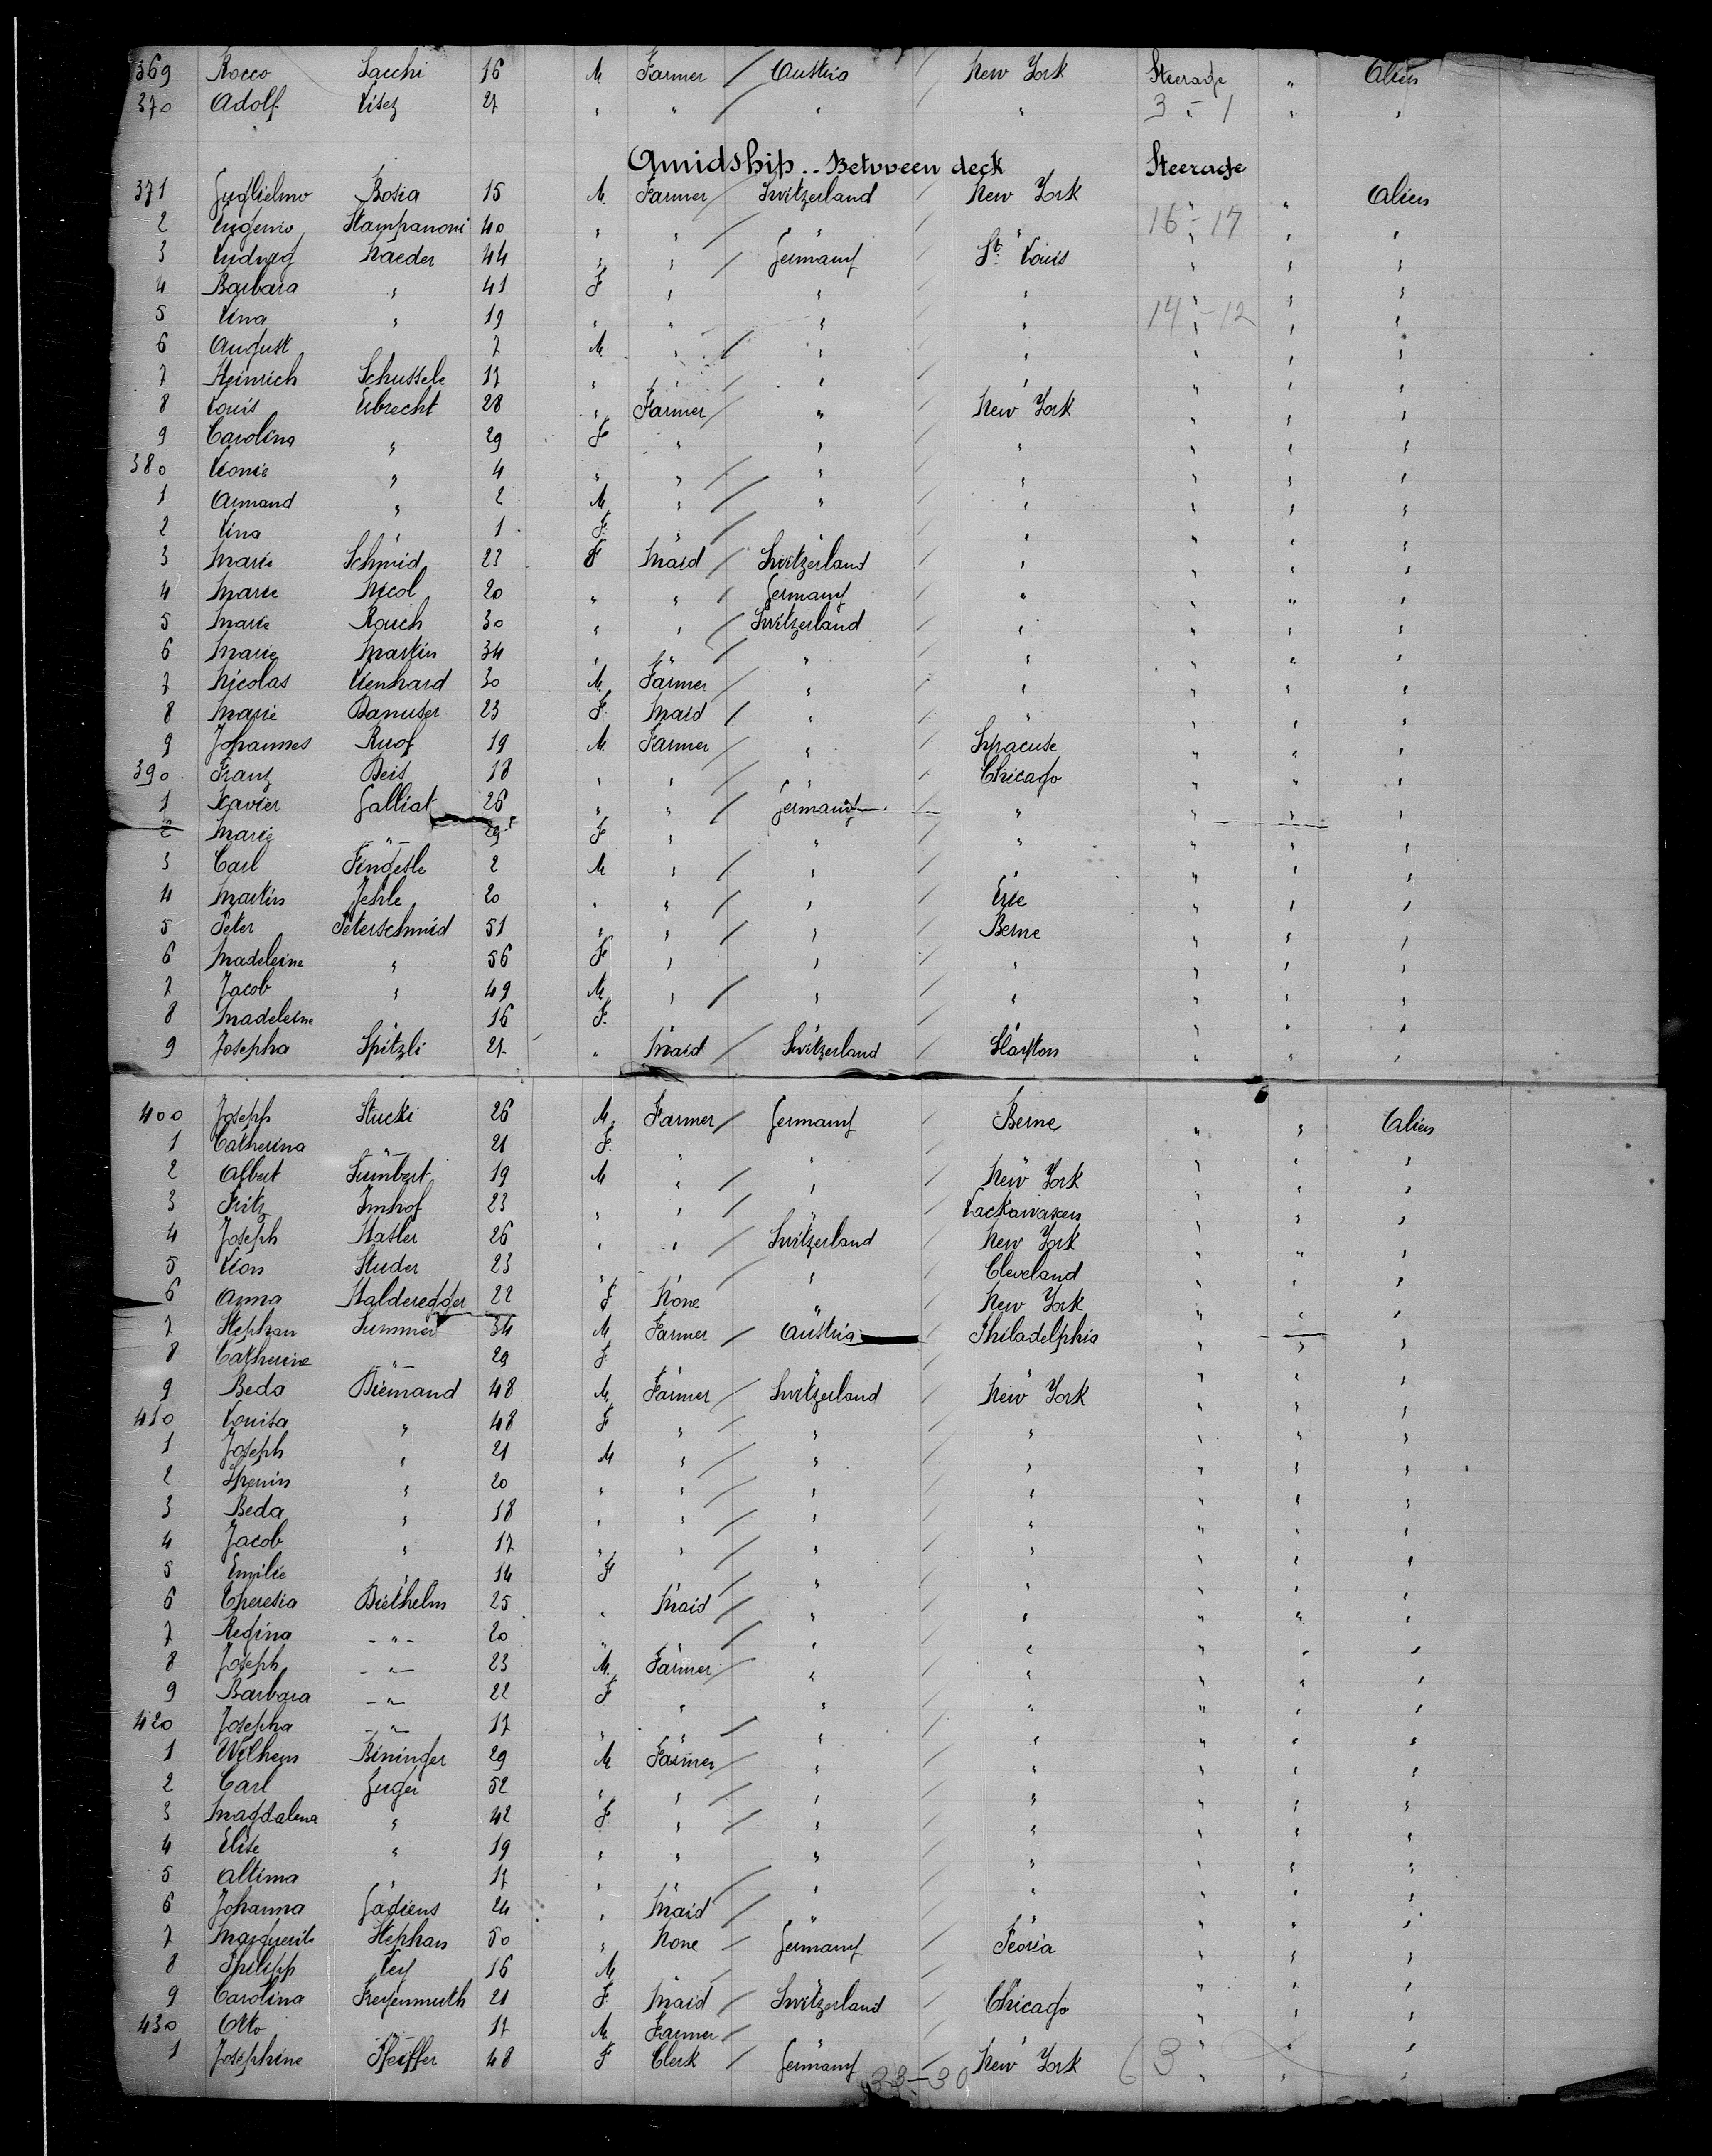 369 Rocco Sacchi 16 M Farmer / Austria / New York Steerage " Alien
370 Adolf 27 " " / " / " 3 - 1 " "
Amidship.. Between deck Steerage
371 Guglielmo Bosia 15 M. Farmer / Switzerland / New York " " Alien
2 Eugenio Stampanoni 40 " " / " / " 16 - 17 " "
3 Ludwig Naeder 44 " " / Germany / St. Louis " " "
4 Barbara " 41 F " " " " " "
5 Lina " 19 " " " " 14 - 12 " "
6 August " 7 M. " / " / " " " "
7 Heinrich Schussele 17 " " / " / " " " "
8 Louis Erbrecht 28 " Farmer / " / New York " " "
9 Carolina " 29 F " / " / " " " "
380 Leonie " 4 " " / " / " " " "
1 Armand " 2 M " / " / " " " "
2 Lina " 1 F. " / " / " " " "
3 Marie Schmid 23 F Maid / Switzerland / " " " "
4 Marie Nicol 20 " " / Germany / " " " "
5 Marie Rouch 30 " " / Switzerland / " " " "
6 Marie Martin 34 " " / " / " " " "
7 Nicolas Lienhard 30 M. Farmer " / " " " "
8 Marie Danuser 23 F. Maid / " / " " " "
9 Johannes Ruof 19 M. Farmer / " / Syracuse " " "
390 Franz Beis 18 " " / " / Chicago " " "
1 Xavier Galliat 26 " " / Germany / " " " "
2 Marie " 29 F " " / " " " "
3 Carl Fingesle 2 M " / " / " " " "
4 Martin Jehle 20 " " / " / Erie " " "
5 Peter Peterschmid 51 " " / " / Berne " " "
6 Madeleine " 56 F " " / " " " "
7 Jacob " 49 M. " / " / " " " "
8 Madeleine " 16 F. " " "
9 Josepha Spitzli 27 " Maid / Switzerland / Slayton " " "
400 Joseph Stucki 26 M. Farmer / Germany / Berne " " Alien
1 Catherina " 21 F. " " " " " "
2 Albert Sumbert 19 M " / " / New York " " "
3 Fritz Imhof 23 " " / " / Lackawaxen " " "
4 Joseph Hasler 26 " " / Switzerland / New York " " "
5 Leon Studer 23 " " / " / Cleveland " " "
6 Anna Halderegger 22 F None " / New York " " "
7 Stephan Summer 34 M. Farmer / Austria / Philadelphia " " "
8 Catherine " 29 F " " "
9 Beda Diemand 48 M. Farmer / Switzerland / New York " " "
410 Louisa " 48 F " / " / " " " "
1 Joseph " 21 M " / " / " " " "
2 " 20 " " / " / " " " "
3 Beda " 18 " " / " / " " " "
4 Jacob " 17 " " / " / " " " "
5 Emilie " 14 F / " / " " " "
6 Theresia Diethelm 25 " Maid / " / " " " "
7 Regina " 20 " " / " / " " " "
8 Joseph " 23 M. Farmer / " / " " " "
9 Barbara " 22 F " " / " " " "
420 Josepha " 17 " " / " / " " " "
1 Wilhem Bininger 29 M Farmer / " / " " " "
2 Carl Zuger 52 " " / " / " " " "
3 Magdalena " 42 F " / " / " " " "
4 Elise " 19 " " " / " " " "
5 Altima " 17 " " / " / " " " "
6 Johanna Gadiens 24 " Maid / " / " " " "
7 Marguerite Stephan 50 " None / Germany / Peoria " " "
8 Philipp Ley 16 M / / " " "
9 Carolina Freyenmuth 21 F Maid / Switzerland / Chicago " " "
430 Otto " 17 M. Farmer / / " " "
1 Josephine Pfeiffer 48 F Clerk / Germany / New York 63 " " "
33-30